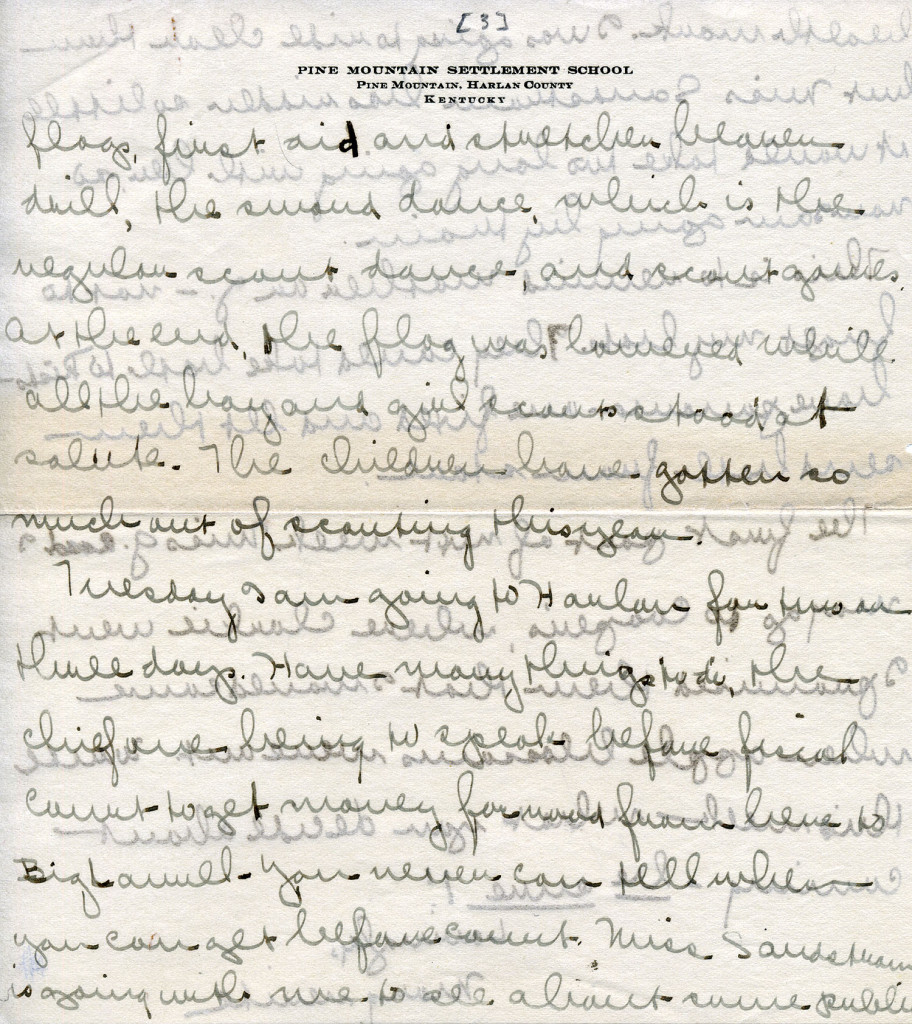 [3]
PINE MOUNTAIN SETTLEMENT SCHOOL
PINE MOUNTAIN, HARLAN COUNTY
KENTUCKY
flags, first aid and stretcher bearer
drill, the sword dance, which is the
regular scout dance, and scout games.
At the end, the flag was lowered while
all the boy and girl scouts stood at
salute. The children have gotten so
much out of scouting this year.
Tuesday I am going to Harlan for two or
three days. Have many things to do, the
chief one being to speak before fiscal
court to get money for road from here to
Big Laurel - You never can tell when
you can get before court. Miss Sandstrom
is going with me to see about some public